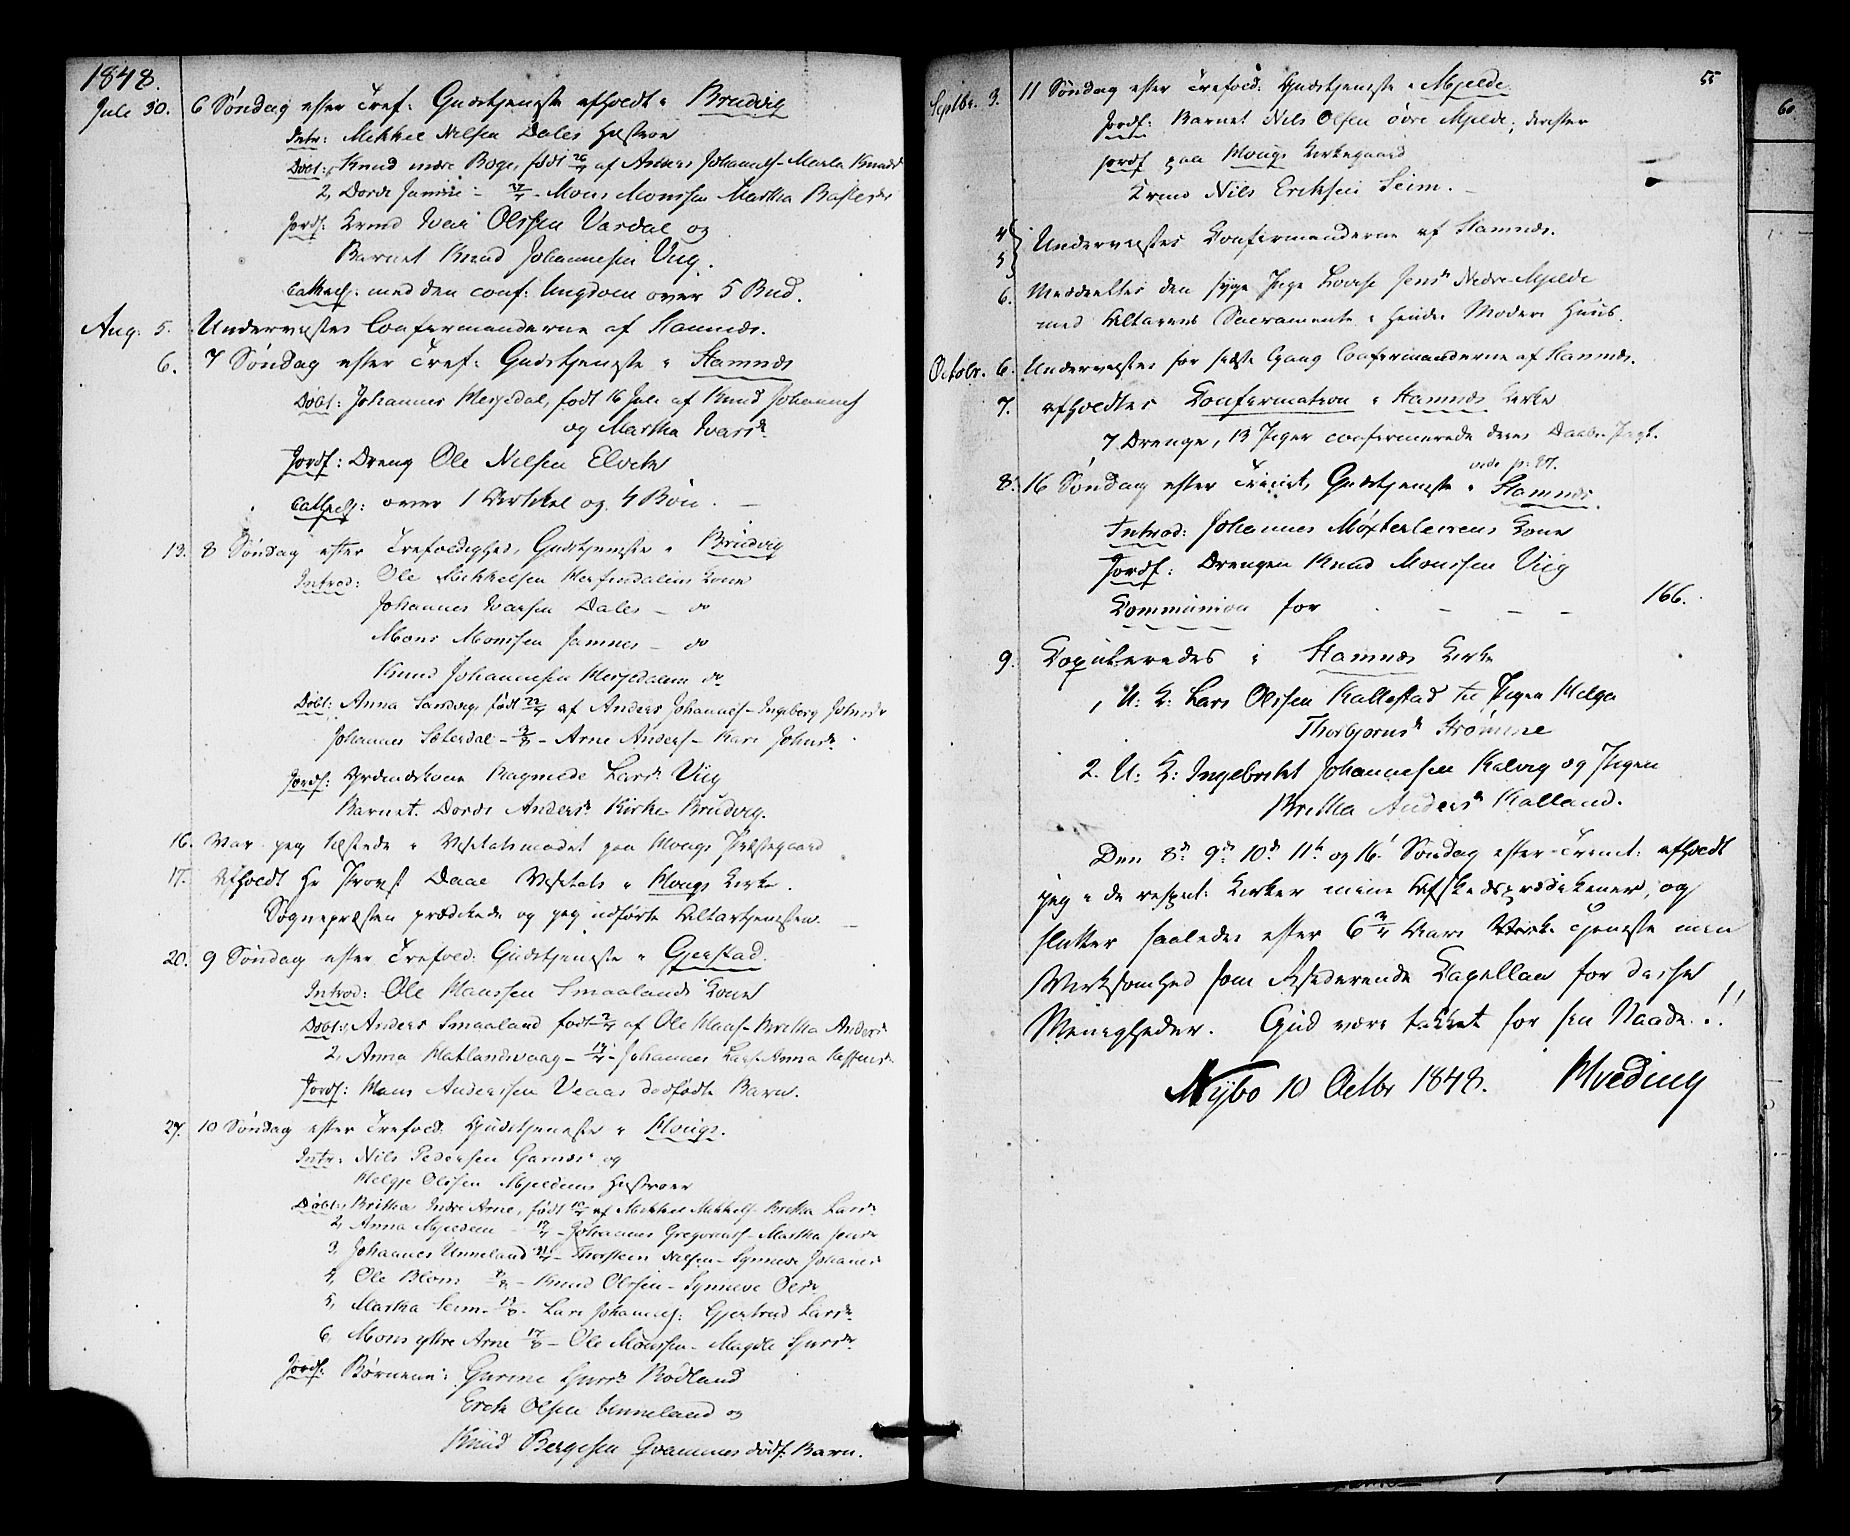 1848.
Juli 30. 6 Søndag efter Tref: Gudstjeneste afholdt i Brudvig
Intr: Mikkel Nilsen Dales Hustroe
Døbt: Knud indre Boge, født 26/ af Anders Johannes- Marta Knuds
2, Dorde Jamne - - Mons Monssen Martha
Jordf: Knud Iver Olssen Vardal og
Barnet Knud Johannesen Viig.
Cathech. med den conf: Ungdom over 5 Bud.
Aug. 5. Underviistes Confirmanderne af Stamnes.
6. 7 Søndag efter Tref: Gudstjeneste i Stamnæs
Døbt: Johannes Hesjedal, født 16 Juli af Knud Johannes
og Martha Ivarsd.
Jordf: Dreng Ole Nilsen Elvik
Cathech: over 1 Artikel og 4 Bøn. —
13. 8 Søndag efter Trefoldighed, Gudstjeneste i Brudvig
Introd: Ole Mikkelsen Herfindalens Kone
Johannes Ivarsen Dales — do
Mons Monssen Jamnes — do
Knud Johannesen Hesjedalen do
Døbt: Anna født af Anders Johannes- Ingeborg Johnsd
Johannes Sæterdal - - Arne Anders- Kari Johnsd.
Jordf: Ragnilde Larsd Viig
Barnet. Dorde Andersd Kirke Brudvig.
16. Var jeg tilstede i Visitatsmødet paa Hougs Præstegaard
17. Afholdt Hr Provst Daae Visitats i Hougs Kirke.
Sognepræsten prædikede og jeg udførte Altartjenesten. —
20. 9 Søndag efter Trefold: Gudstjeneste i Gjerstad.
Introd: Ole Hanssen Smaalands Kone
Døbt: Anders Smaaland født af Ole Hans- Britha Anders
2, Anna Hatlandsvaag - - Johannes Lars- Anna
Jordf: Hans Anderssen Veaas dødfødte Barn.
27. 10 Søndag efter Trefold: Gudstjeneste i Hougs.
Intr: Nils Pedersen Garnæs og
Helge Olssen Mjeldens Hustroer
Døbt: Britha Indre Arne, født af Mikkel Mikkels- Britha Larsd.
2, Anna Mjelden - Johannes Gregorius- Martha Jensd
3, Johannes Unneland - Thorstein Nilsen- Synneve Johannesd
4, Ole Blom - Knud Olssen- Synneve Olsd
5, Martha Seim - Lars Johannes: Gjertrud Larsd.
6 Mons yttre Arne - Ole Monssen- Magdle Sjursd.
Jordf: Børnene: Gurine Sjursd Rødland
Erik Olsen Unneland og
Knud Børgesen Gvammes dødf. Barn.
55
60
Septbr. 3. 11 Søndag efter Trefold: Gudstjeneste i Mjelde.
Jordf: Barnet Nils Olsen øvre Mjelde; derefter
jordf paa Hougs Kirkegaard
Nils Eriksen Seim. —
4
5 } Underviistes Confirmanderne af Stamnæs.
6. Meddeeltes den syge Pige Lovise Jensd Nedre Mjelde
med Altarens Sacramente i hendes Moders Huus.
Octobr. 6. Underviistes for sidste Gang Confirmanderne af Stamnæs.
7. afholdtes Confirmation i Stamnæs Kirke
7 Drenge, 13 Piger confirmerede deres Daabs Pagt.
vide p: 87.
8. 16 Søndag efter Trinit, Gudstjeneste i Stamnæs.
Introd: Johannes Kone
Jordf: Drengen Knud Monssen Viig
Communion for . — — — 166.
9. Copuleredes i Stamnæs Kirke
1, U. K: Lars Olssen Kallestad til Pigen Helga
Thorbjørnsd Strømme
2. U. K: Ingebrikt Johannesen Kalvig og Pigen
Britha Andersd Kalland.
Den 8de 9de 10de 11te og 16 Søndag efter Trinit: afholdt
jeg i de respect: Kirker mine Afskedsprædikener, og
slutter saaledes efter 6 3/4 Aars Tjeneste min
Virksomhed som Residerende Capellan for disse
Menigheder. Gud være takket for sin Naade!!
Nybo 10 Octbr 1848. Hveding